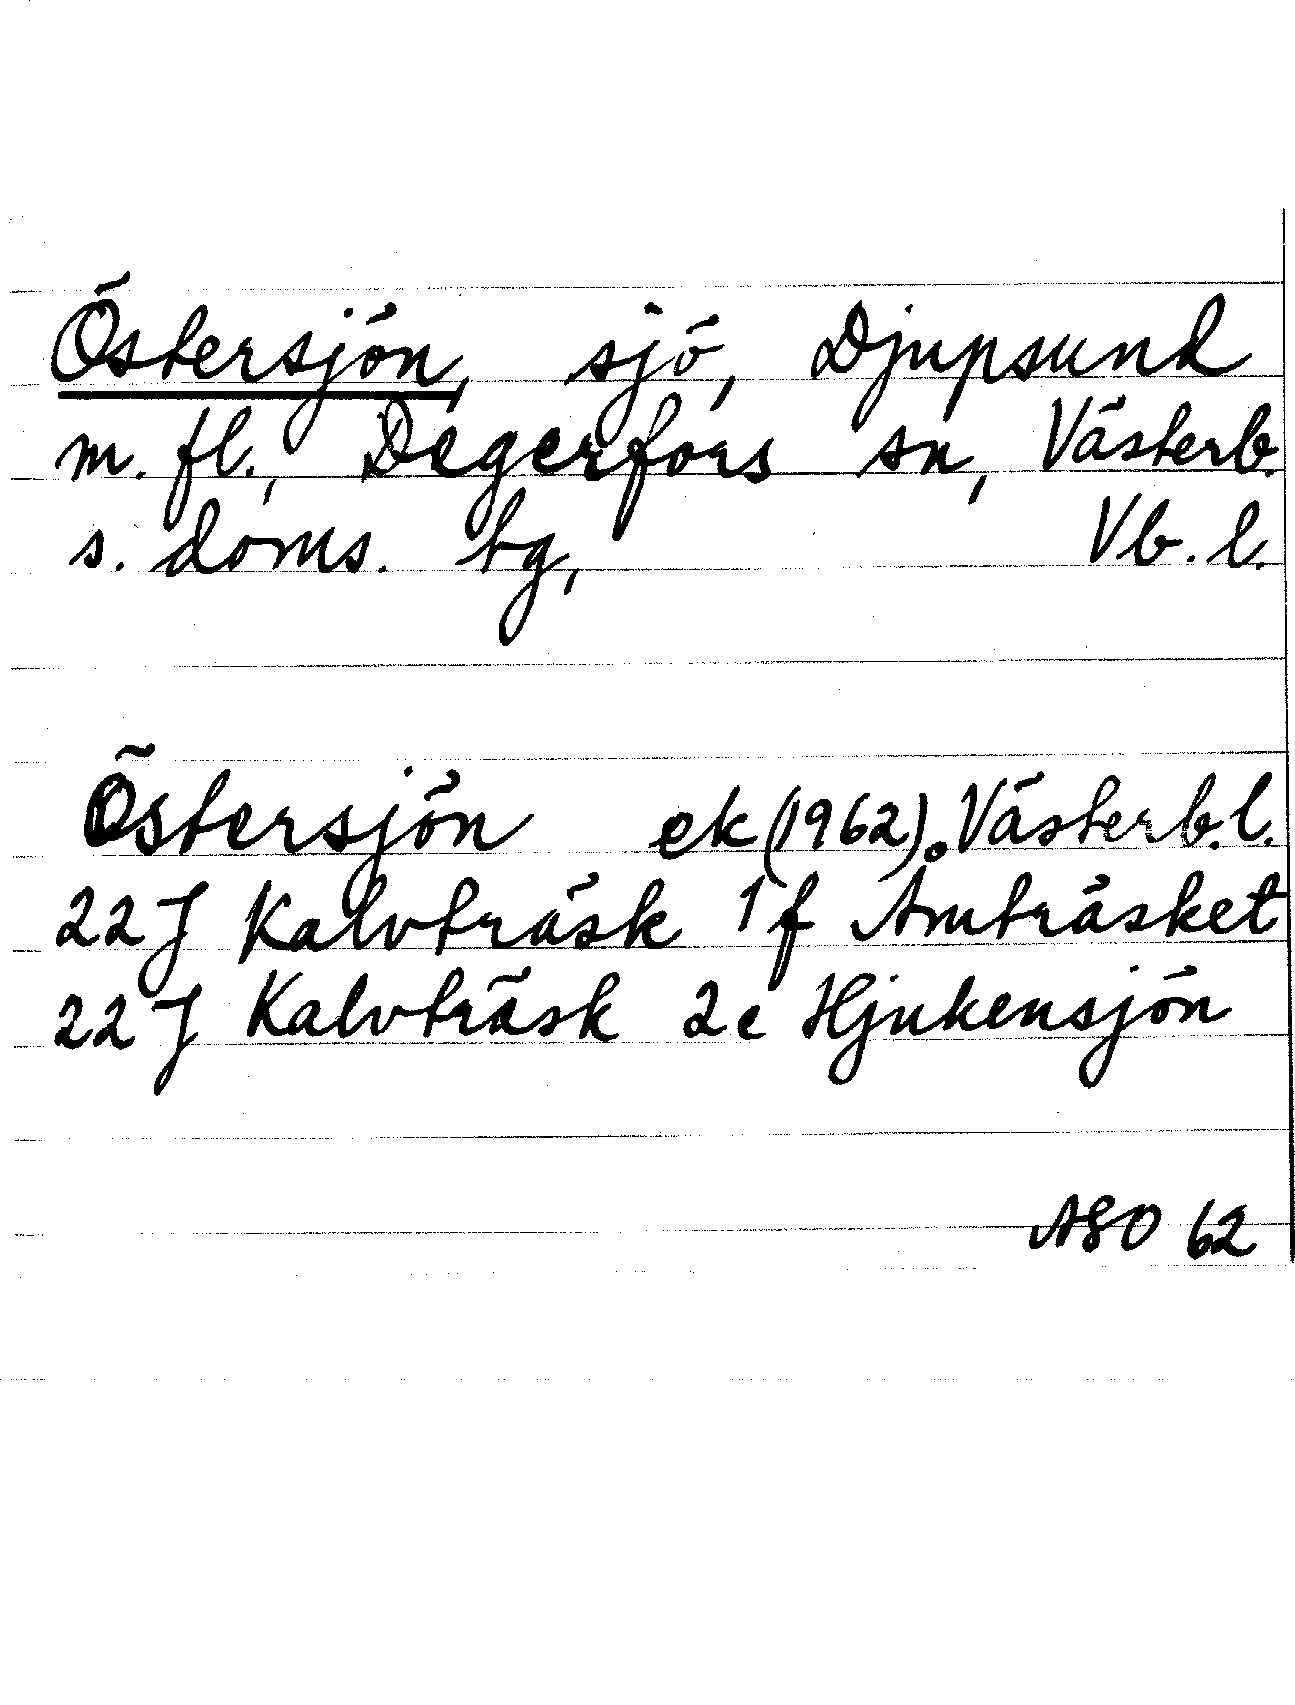 Östersjön, sjö, Djupsund
m. fl., Degerfors sn, Västerb.
s. doms. tg, Vb. l.
Östersjön ek (1962). Västerb. l.
22 J Kalvträsk 1 f Åmträsket
22 J Kalvträsk 2 e Hjukensjön
ASO 62